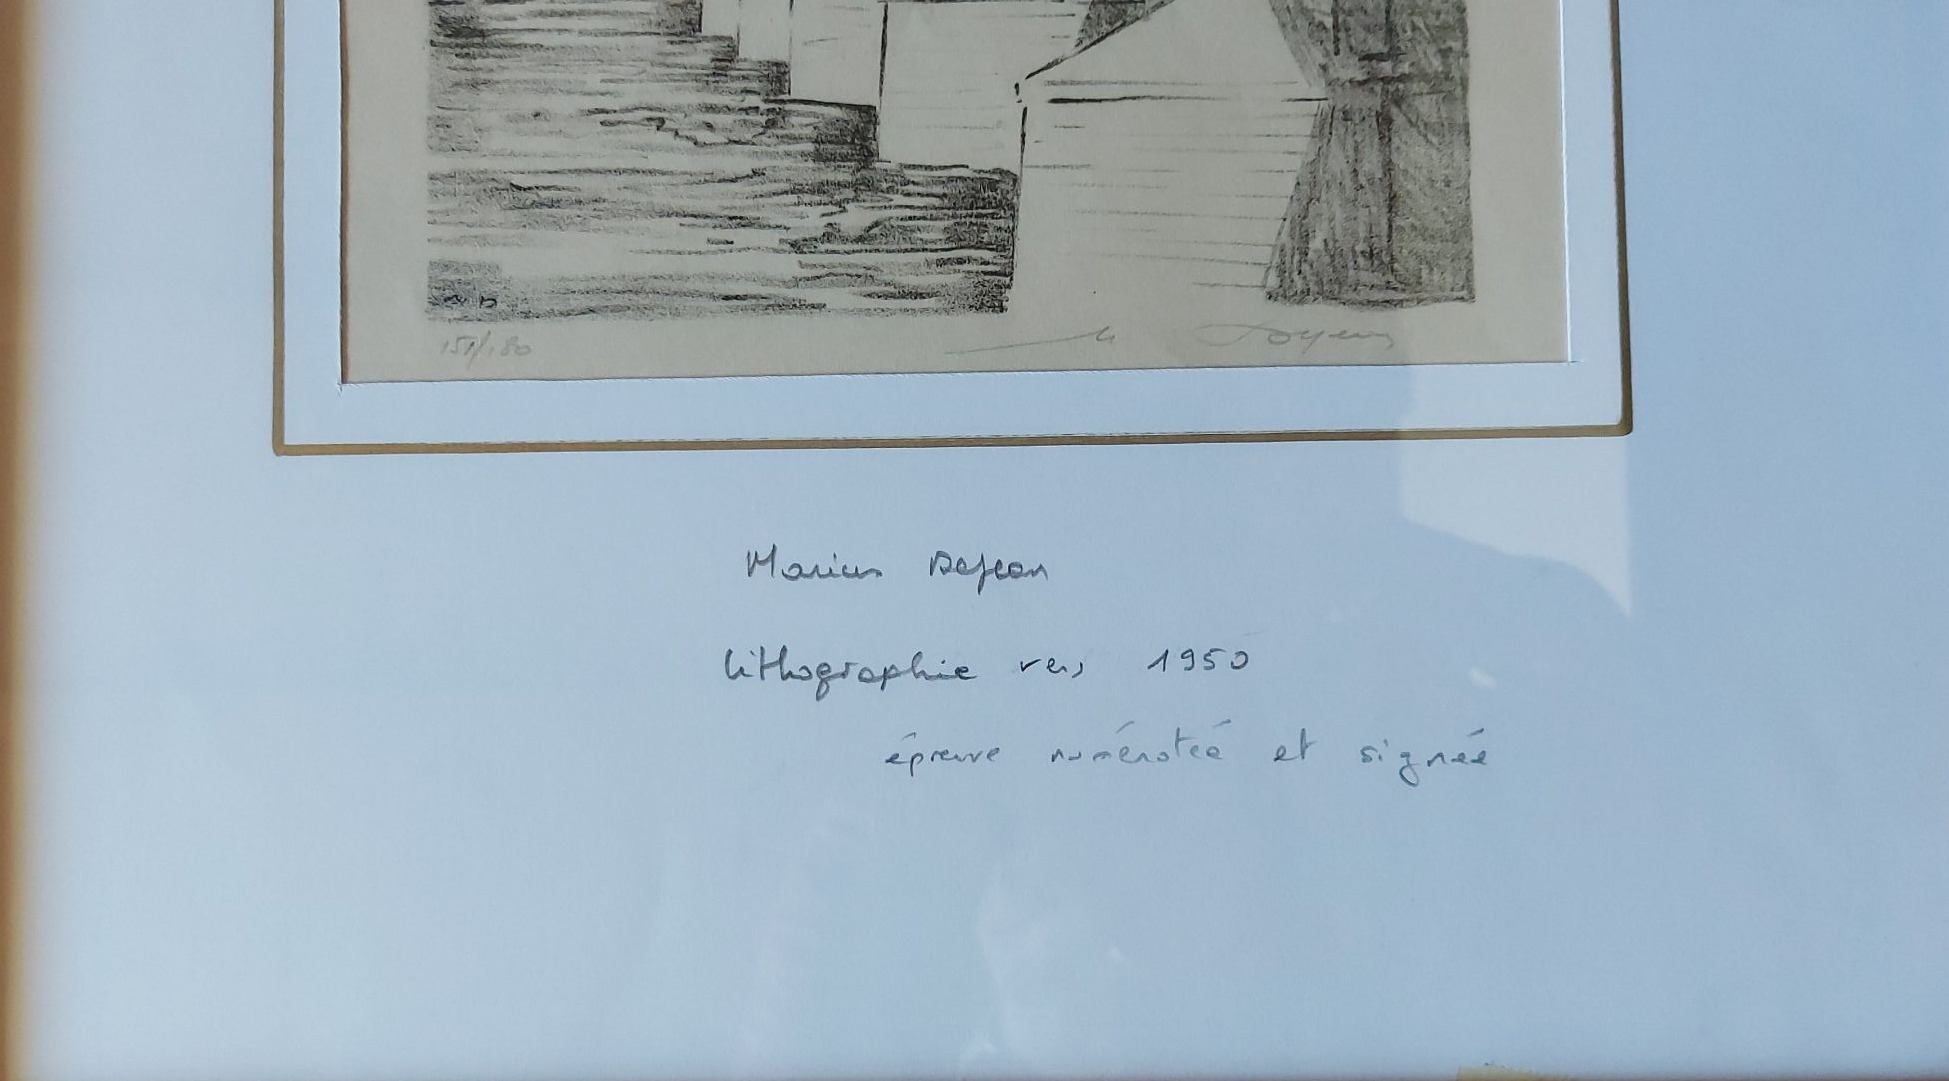 151/180
Marius Dejean
Lithographie vers 1950
épreuve numérotée et signée